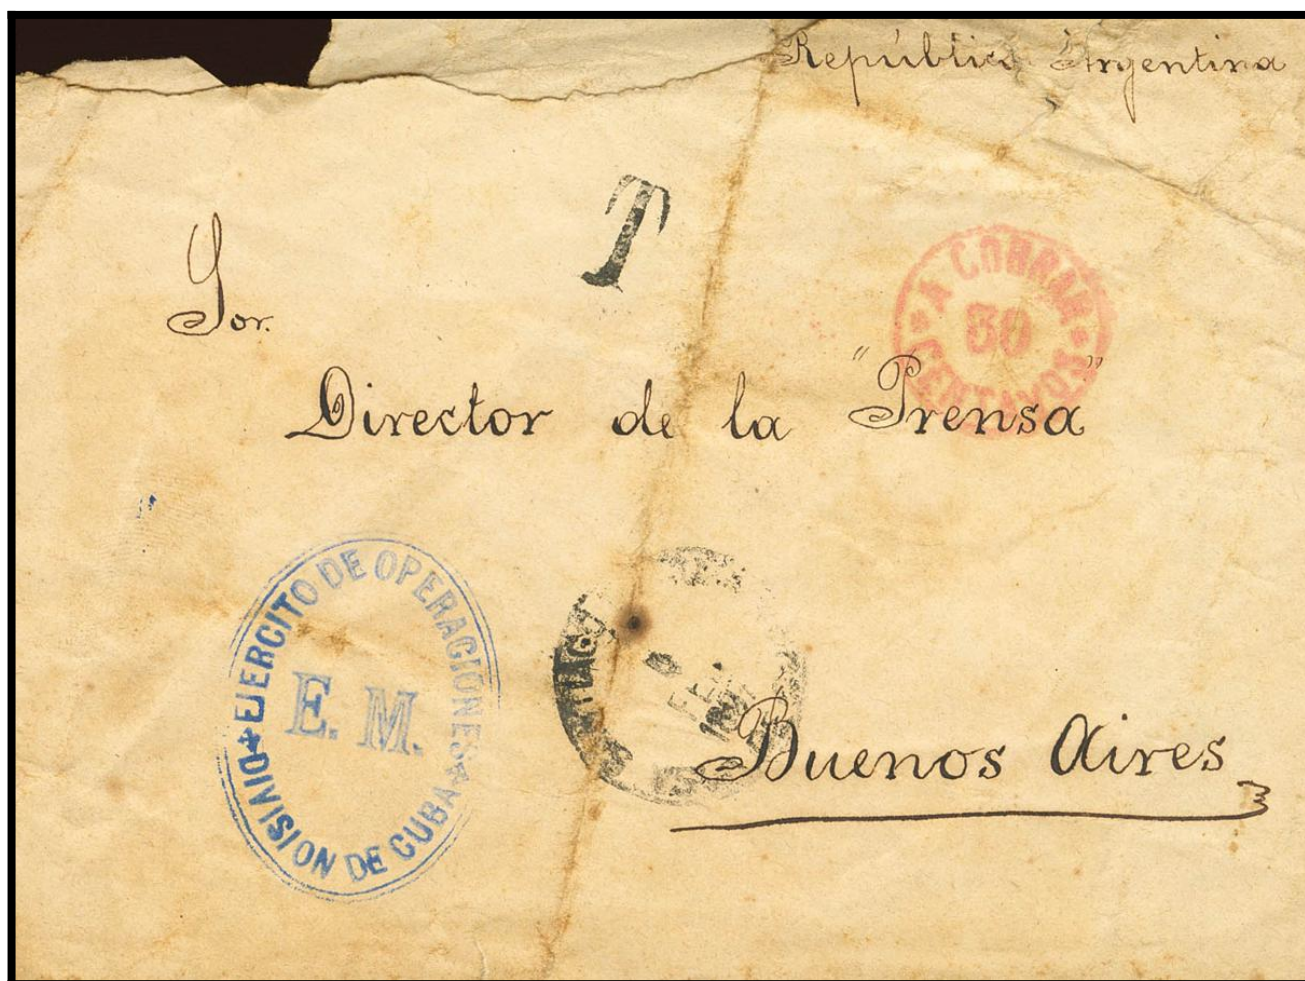 República Argentina
T
Sor.
A COBRAR
30
CENTAVOS
Director de la "Prensa"
EJERCITO DE OPERACIONES
E. M.
DIVISION DE CUBA
FEB.
Buenos Aires